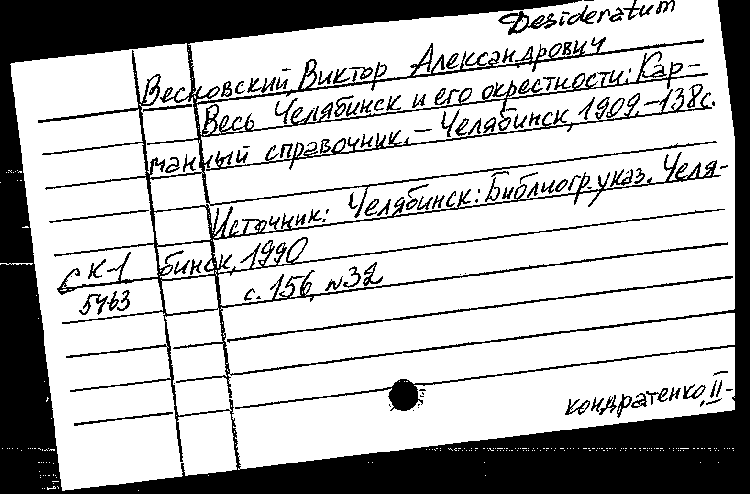 Desideratum
Весновский, Виктор Александрович
Весь Челябинск и его окрестности: Кар-
манный справочник. – Челябинск, 1909. – 138с.
Источник: Челябинск: Библиогр. указ. Челя-
бинск, 1990
с. 156, №32
СК-1
5463
Кондратенко, II-